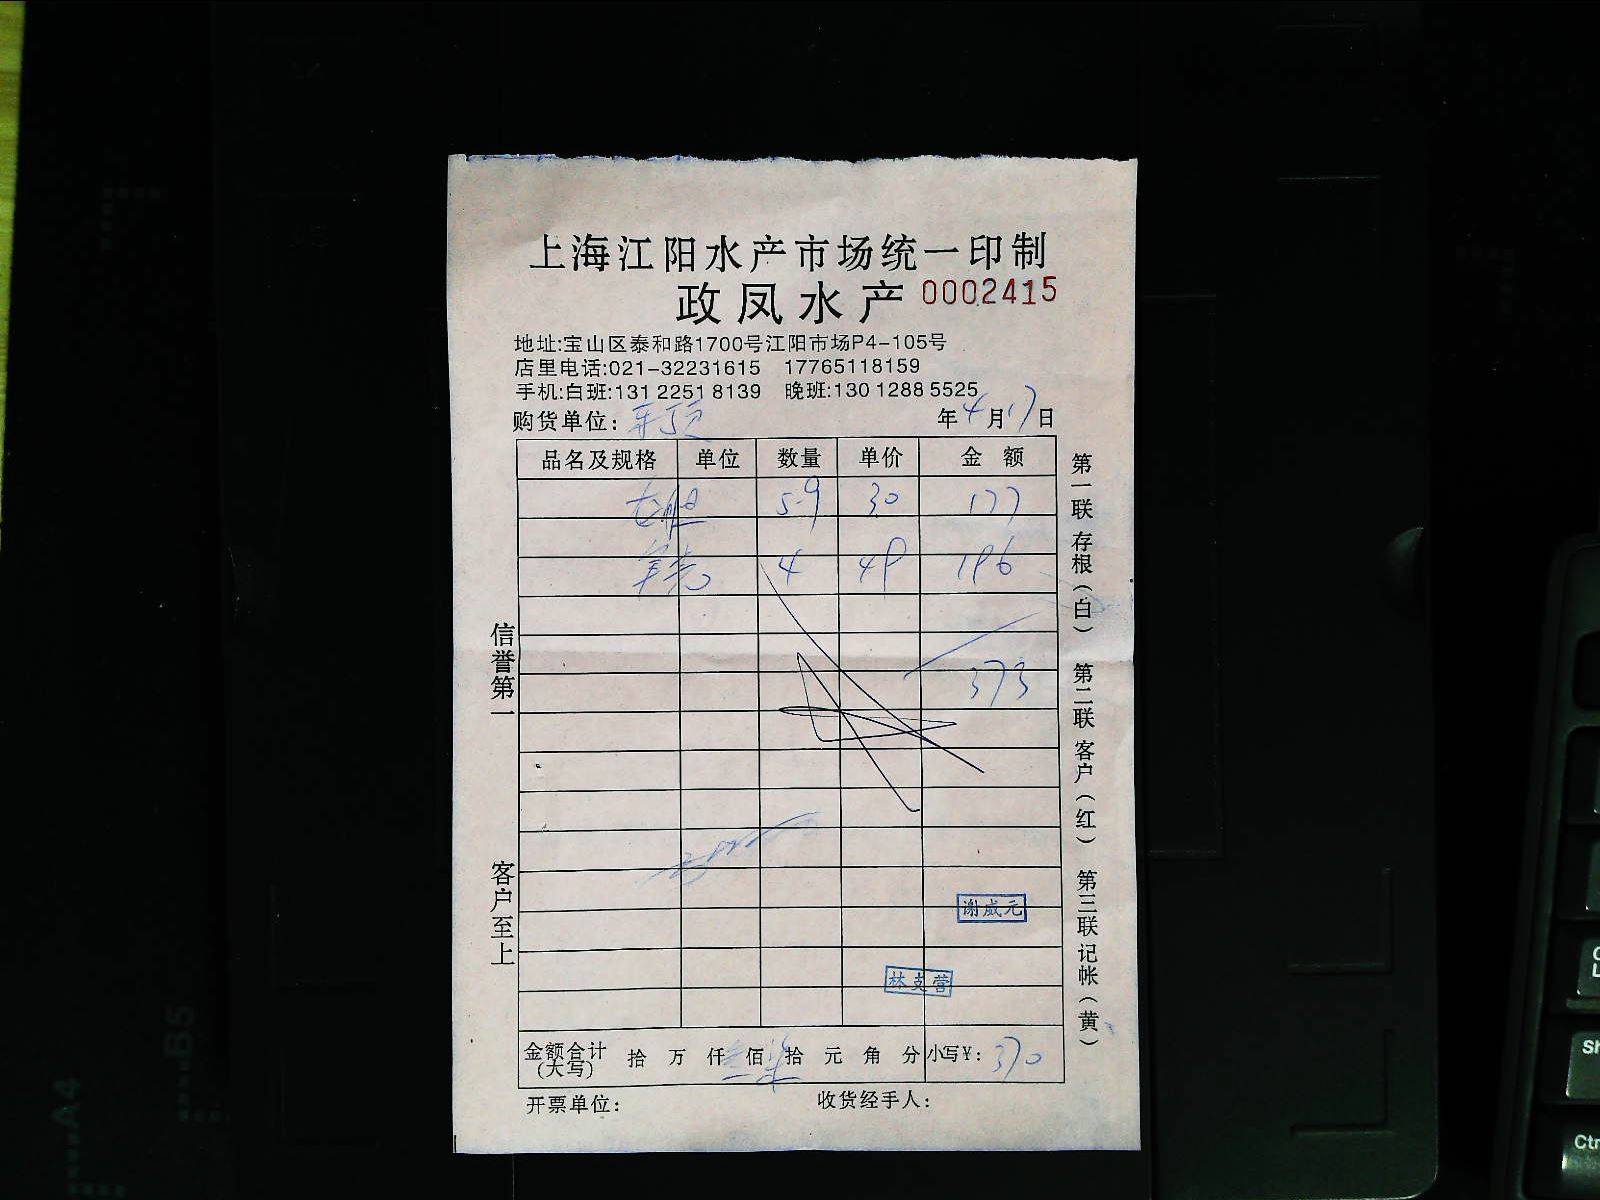 上海江阳水产市场统一印制
政凤水产 0002415
地址:宝山区泰和路1700号江阳市场P4-105号
店里电话:021-32231615 17765118159
手机:白班:131 2251 8139 晚班:130 1288 5525
购货单位: 年4月17日
品名及规格 单位 数量 单价 金额
5.9 30 177
4 49 196
373
谢成元
林支营
金额合计(大写) 拾万仟叁佰柒拾元角分 小写¥:370
开票单位: 收货经手人:
信誉第一
客户至上
第一联存根(白) 第二联客户(红) 第三联记帐(黄)
B5
A4
Sh
Ctr